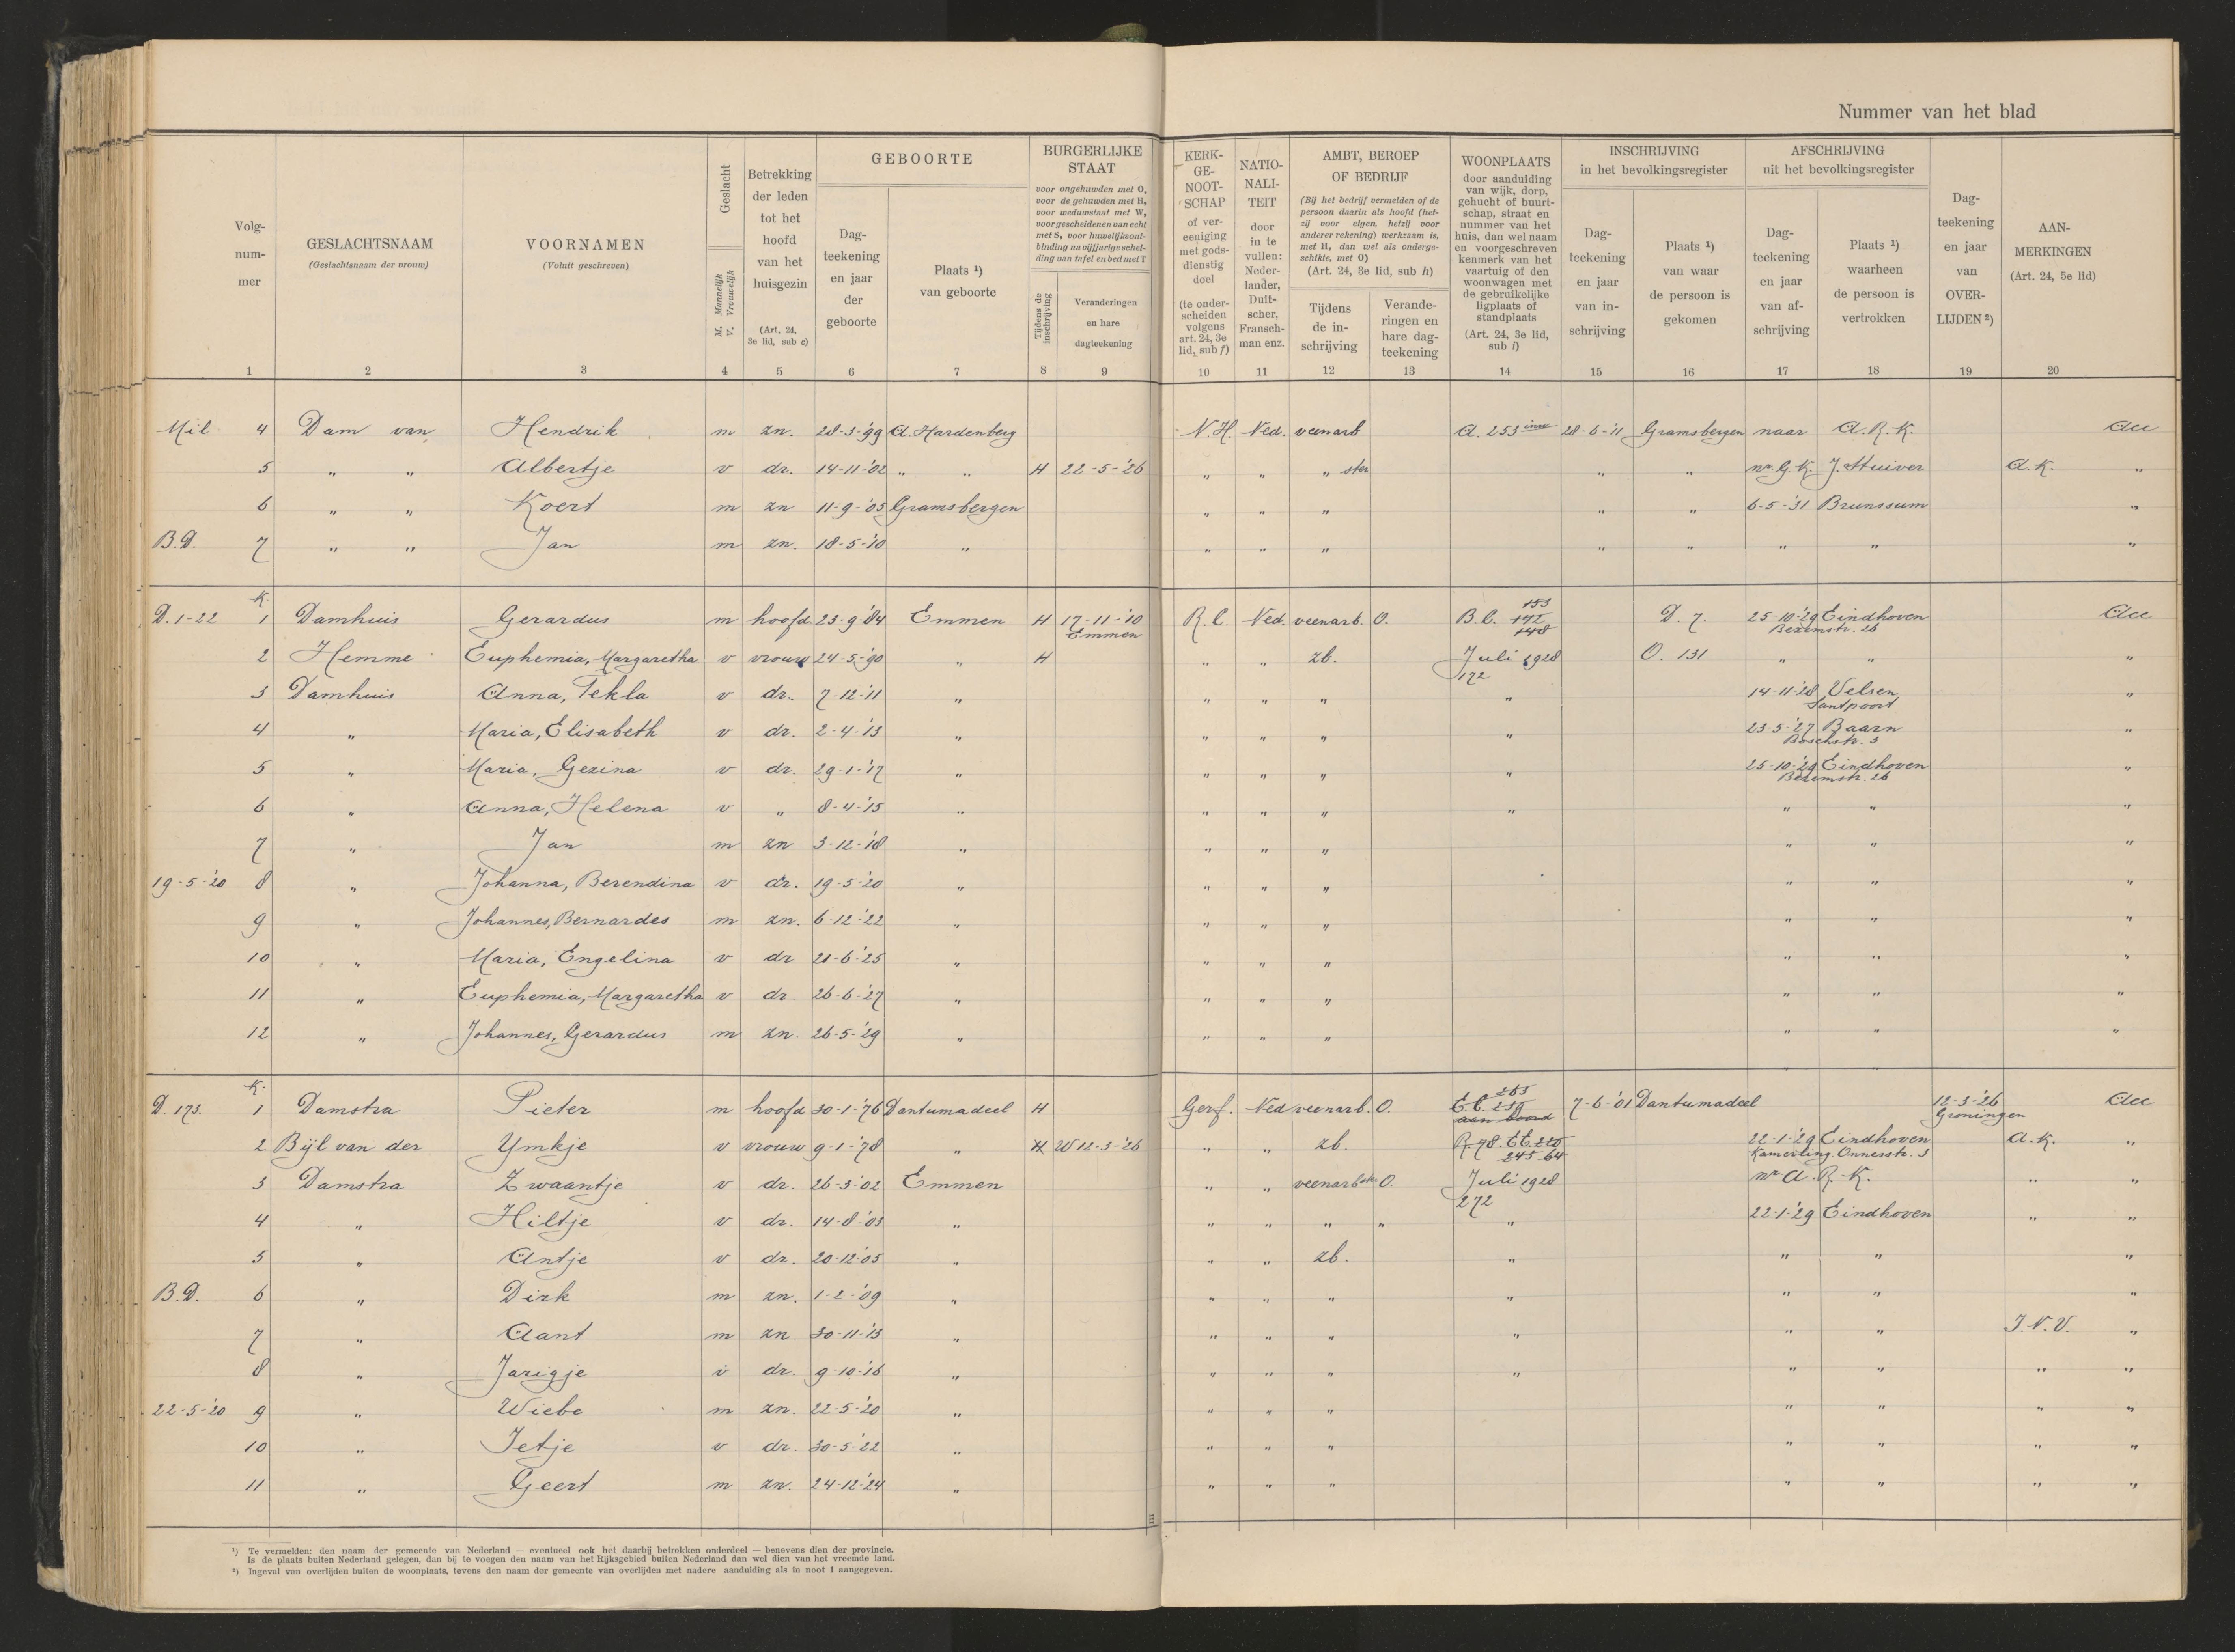 Nummer van het blad
Volg-
num-
mer
GESLACHTSNAAM
(Geslachtsnaam der vrouw)
VOORNAMEN
(Voluit geschreven)
Geslacht
M. Mannelijk
V. Vrouwelijk
Betrekking
der leden
tot het
hoofd
van het
huisgezin
(Art. 24,
3e lid, sub c)
GEBOORTE
Dag-
teekening
en jaar
der
geboorte
Plaats ¹)
van geboorte
BURGERLIJKE
STAAT
voor ongehuwden met O,
voor de gehuwden met H,
voor weduwstaat met W,
voor gescheidenen van echt
met S, voor huwelijksont-
binding na vijfjarige schei-
ding van tafel en bed met T
Tijdens de
inschrijving
Veranderingen
en hare
dagteekening
KERK-
GE-
NOOT-
SCHAP
of ver-
eeniging
met gods-
dienstig
doel
(te onder-
scheiden
volgens
art. 24, 3e
lid, sub f)
NATIO-
NALI-
TEIT
door
in te
vullen:
Neder-
lander,
Duit-
scher,
Fransch-
man enz.
AMBT, BEROEP
OF BEDRIJF
(Bij het bedrijf vermelden of de
persoon daarin als hoofd (het-
zij voor eigen, hetzij voor
anderer rekening) werkzaam is,
met H, dan wel als onderge-
schikte, met O)
(Art. 24, 3e lid, sub h)
Tijdens
de in-
schrijving
Verande-
ringen en
hare dag-
teekening
WOONPLAATS
door aanduiding
van wijk, dorp,
gehucht of buurt-
schap, straat en
nummer van het
huis, dan wel naam
en voorgeschreven
kenmerk van het
vaartuig of den
woonwagen met
de gebruikelijke
ligplaats of
standplaats
(Art. 24, 3e lid,
sub i)
INSCHRIJVING
in het bevolkingsregister
Dag-
teekening
en jaar
van in-
schrijving
Plaats ¹)
van waar
de persoon is
gekomen
AFSCHRIJVING
uit het bevolkingsregister
Dag-
teekening
en jaar
van af-
schrijving
Plaats ¹)
waarheen
de persoon is
vertrokken
Dag-
teekening
en jaar
van
OVER-
LIJDEN ²)
AAN-
MERKINGEN
(Art. 24, 5e lid)
1 2 3 4 5 6 7 8 9 10 11 12 13 14 15 16 17 18 19 20
Mil 4 Dam van Hendrik m zn. 28-3-'99 A. Hardenberg N.H. Ned. veenarb A. 253 inw 28-6-'11 Gramsbergen naar A.R.K. Acc
5 " " Albertje v dr. 14-11-'02 " " H 22-5-'26 " " " ster " " nr. G.K. J. Stuiver A.K. "
6 " " Koert m zn 11-9-'05 Gramsbergen " " " " " 6-5-'31 Brunssum "
B.D. 7 " " Jan m zn. 18-5-'10 " " " " " " " " "
K.
D. 1-22 1 Damhuis Gerardus m hoofd 23-9-'84 Emmen H 17-11-'10 Emmen R.C. Ned. veenarb. O. B.C. 153 142 148 D. 7. 25-10-'29 Eindhoven Bezemstr. 26 Acc
2 Hemme Euphemia, Margaretha v vrouw 24-5-'90 " H " " zb. Juli 1928 O. 131 " " "
172
3 Damhuis Anna, Tekla v dr. 7-12-'11 " " " " " 14-11-'28 Velsen Santpoort "
4 " Maria, Elisabeth v dr. 2-4-'13 " " " " " 23-5-'27 Baarn Boschstr. 3 "
5 " Maria, Gezina v dr. 29-1-'17 " " " " " 25-10-'29 Eindhoven Bezemstr. 26 "
6 " Anna, Helena v " 8-4-'15 " " " " " " " "
7 " Jan m zn 3-12-'18 " " " " " " "
19-5-'20 8 " Johanna, Berendina v dr. 19-5-'20 " " " " " " "
9 " Johannes, Bernardes m zn. 6-12-'22 " " " " " " "
10 " Maria, Engelina v dr 21-6-'25 " " " " " " "
11 " Euphemia, Margaretha v dr. 26-6-'27 " " " " " " "
12 " Johannes, Gerardus m zn. 26-5-'29 " " " " " " "
K.
D. 173. 1 Damstra Pieter m hoofd 30-1-'76 Dantumadeel H Geref. Ned veenarb. O. aan boord 7-6-'01 Dantumadeel 12-3-'26 Groningen Acc
2 Bijl van der Ymkje v vrouw 9-1-'78 " H W 12-3-'26 " " zb. R. 78. 245 64 22-1-'29 Eindhoven Kamerling Onnesstr. 3 A.K. "
3 Damstra Zwaantje v dr. 26-3-'02 Emmen " " veenarbster O. Juli 1928 nr A.R.K. " "
272
4 " Hiltje v dr. 14-8-'03 " " " " " " 22-1-'29 Eindhoven " "
5 " Antje v dr. 20-12-'05 " " " zb. " " " "
B.D. 6 " Dirk m zn. 1-2-'09 " " " " " " " "
7 " Aant m zn. 30-11-'13 " " " " " " " J.V.V. "
8 " Jarigje v dr. 9-10-'16 " " " " " " " " "
22-5-'20 9 " Wiebe m zn. 22-5-'20 " " " " " " " "
10 " Jetje v dr. 30-5-'22 " " " " " " " "
11 " Geert m zn. 24-12-'24 " " " " " " " "
¹) Te vermelden: den naam der gemeente van Nederland — eventueel ook het daarbij betrokken onderdeel — benevens dien der provincie.
Is de plaats buiten Nederland gelegen, dan bij te voegen den naam van het Rijksgebied buiten Nederland dan wel dien van het vreemde land.
²) Ingeval van overlijden buiten de woonplaats, tevens den naam der gemeente van overlijden met nadere aanduiding als in noot 1 aangegeven.